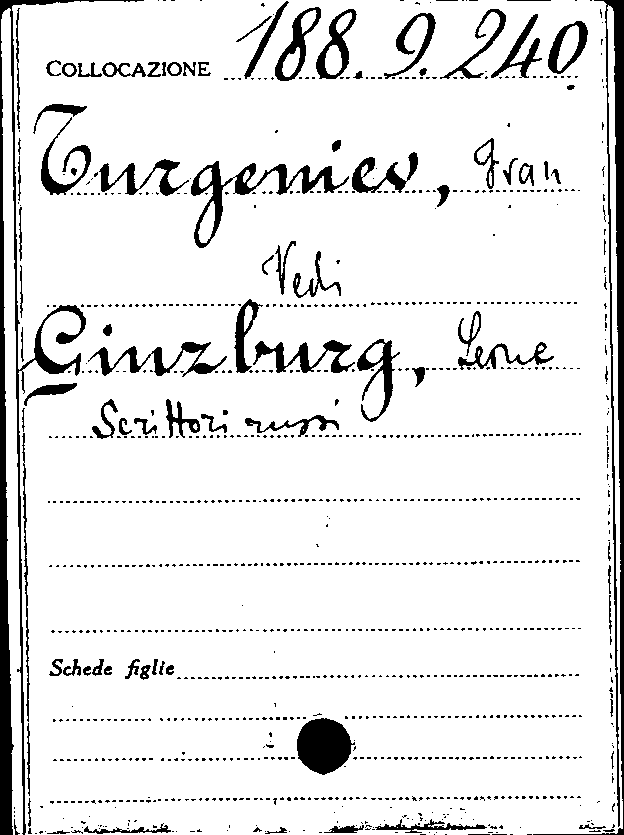 COLLOCAZIONE 188.9.240
Turgeniev, Ivan
Vedi
Ginzburg, Leone
Scrittori russi
Schede figlie